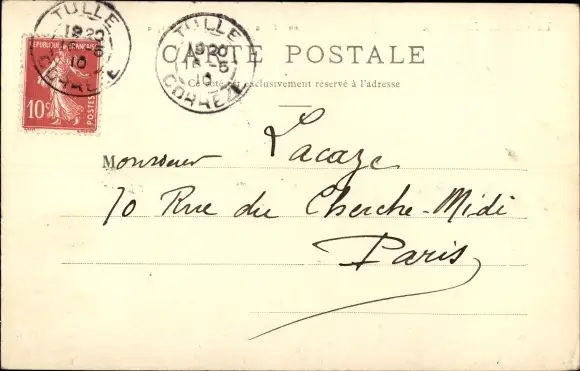 TULLE
19 20
16 -5
10
CORREZE
REPUBLIQUE FRANÇAISE
10c
POSTES
TULLE
19 20
16 -5
10
CORREZE
CARTE POSTALE
Ce côté est exclusivement réservé à l'adresse
Monsieur Lacaze
70 Rue du Cherche-Midi
Paris